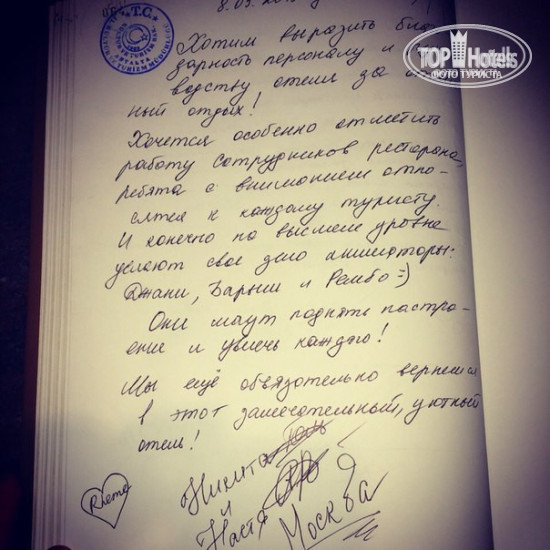 8.09.
T.C.
TOPHotels
ФОТО ТУРИСТА
Хотим выразить благо
дарность персоналу и
водству отеля за
ный отдых!
Хочется особенно отметить
работу сотрудников ресторана,
ребята с вниманием отно-
сятся к каждому туристу.
И конечно на высшем уровне
делают свое дело аниматоры:
Джани, Барыш и Рембо =)
Они могут поднять настро-
ение и увлечь каждого!
Мы ещё обязательно вернемся
в этот замечательный, уютный
отель!
Никита
и
Настя
Москва